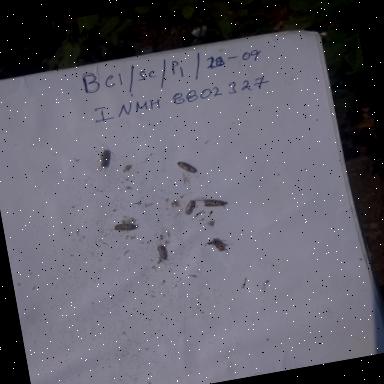 BCI/SC/P1/28-09
INMH 8802327